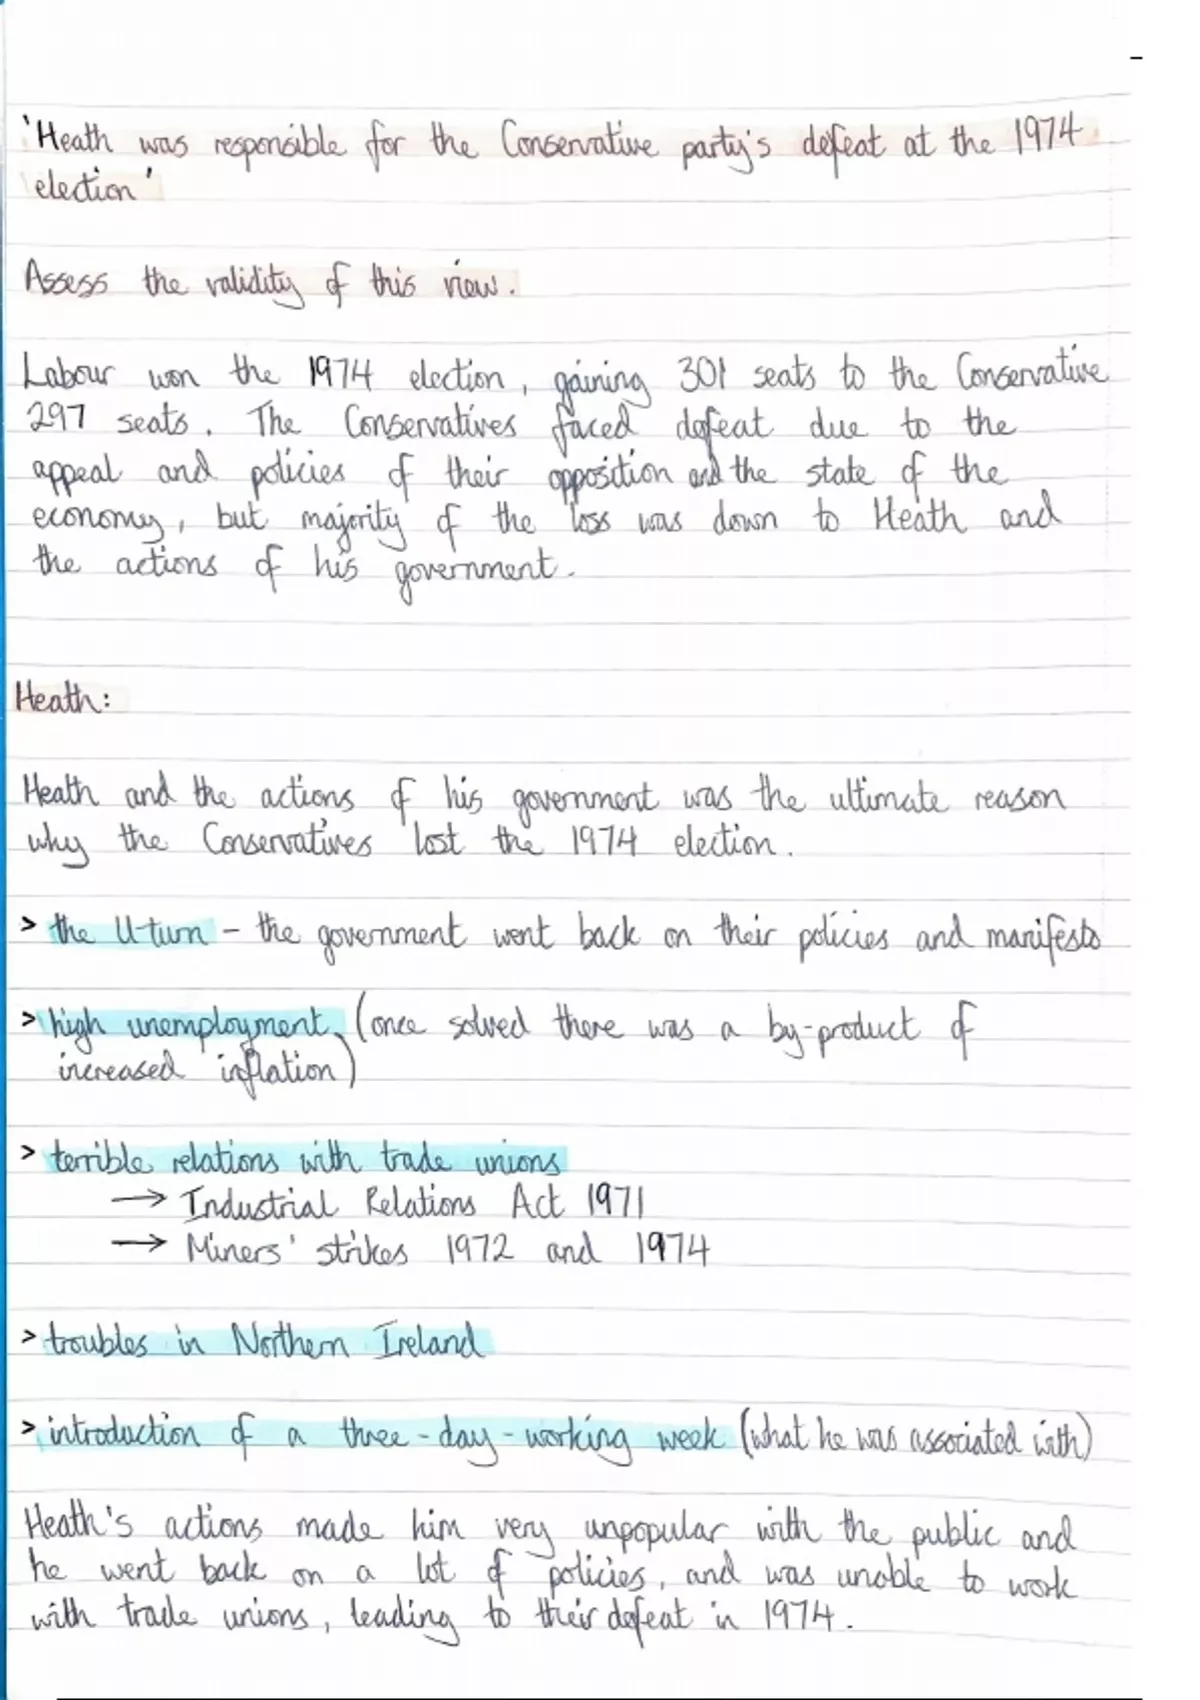 'Heath was responsible for the Conservative party's defeat at the 1974
election'
Assess the validity of this view.
Labour won the 1974 election, gaining 301 seats to the Conservative
297 seats. The Conservatives faced defeat due to the
appeal and policies of their opposition and the state of the
economy, but majority of the loss was down to Heath and
the actions of his government.
Heath:
Heath and the actions of his government was the ultimate reason
why the Conservatives lost the 1974 election.
> the U-turn - the government went back on their policies and manifesto
> high unemployment (once solved there was a by-product of
increased inflation)
> terrible relations with trade unions
→ Industrial Relations Act 1971
→ Miners' strikes 1972 and 1974
> troubles in Northern Ireland
> introduction of a three-day-working week (what he was associated with)
Heath's actions made him very unpopular with the public and
he went back on a lot of policies, and was unable to work
with trade unions, leading to their defeat in 1974.